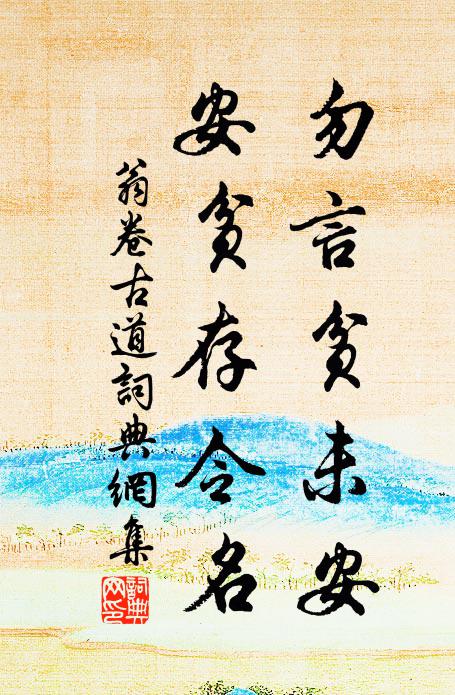 勿言貧未安
安貧存令名
翁卷古道詞典網集
詞典網印